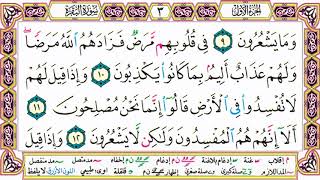 الجزء الأول ٣ سورة البقرة
وَمَا يَشْعُرُونَ ٩ فِى قُلُوبِهِم مَّرَضٌ فَزَادَهُمُ ٱللَّهُ مَرَضًا
وَلَهُمْ عَذَابٌ أَلِيمٌۢ بِمَا كَانُوا۟ يَكْذِبُونَ ١٠ وَإِذَا قِيلَ لَهُمْ
لَا تُفْسِدُوا۟ فِى ٱلْأَرْضِ قَالُوٓا۟ إِنَّمَا نَحْنُ مُصْلِحُونَ ١١
أَلَآ إِنَّهُمْ هُمُ ٱلْمُفْسِدُونَ وَلَٰكِن لَّا يَشْعُرُونَ ١٢ وَإِذَا قِيلَ